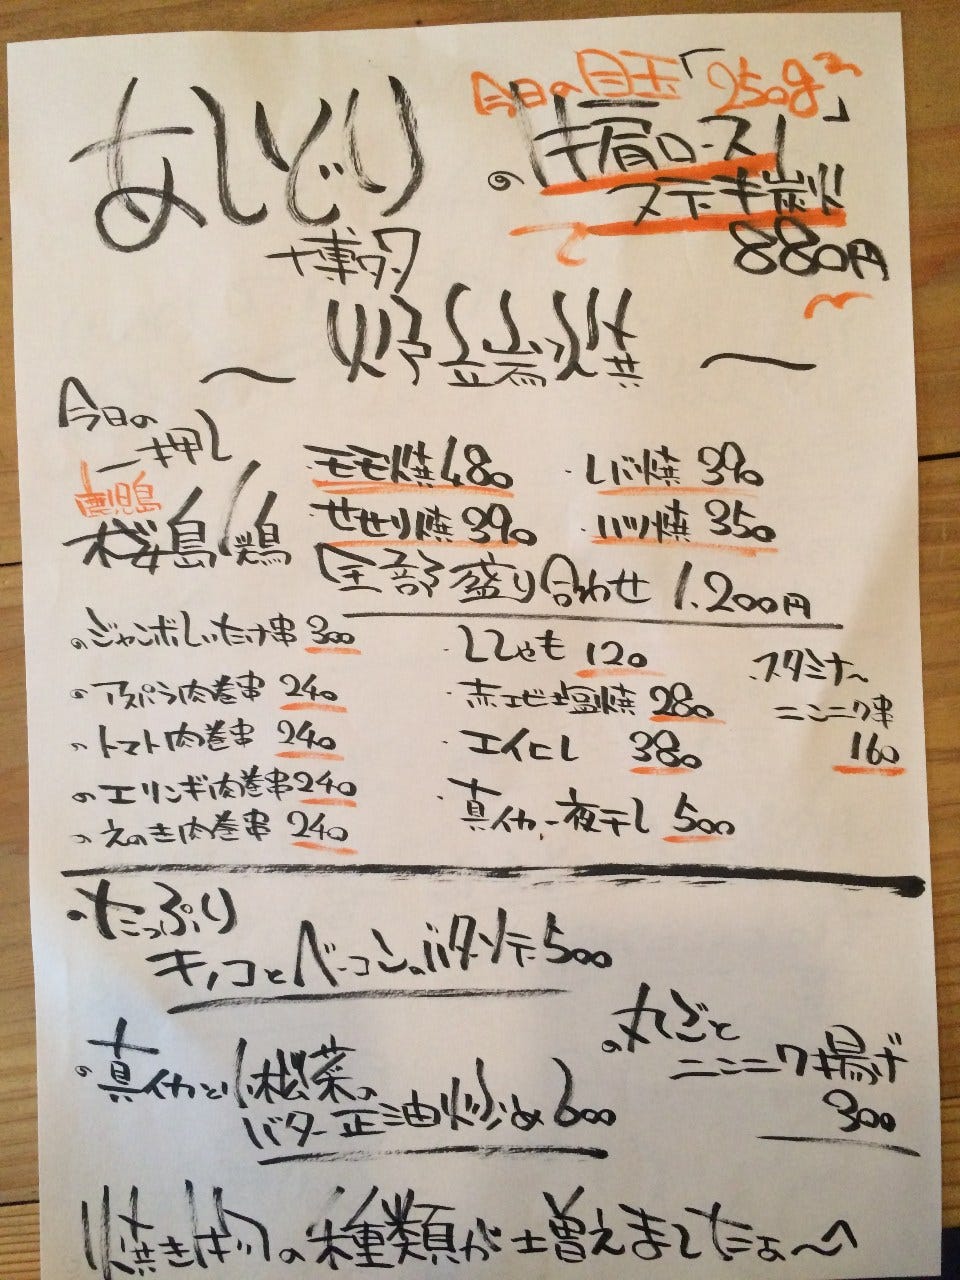 あしどり
博多
今日の目玉「250g」
の牛肩ロース
ステーキ炭火
880円
〜 炉端焼 〜
今日の
一押し
鹿児島
桜島鶏
モモ焼 480
・レバ焼 390
せせり焼 390
・ハツ焼 350
全部盛り合わせ 1.200円
・ジャンボしいたけ串 300
・アスパラ肉巻串 240
・トマト肉巻串 240
・エリンギ肉巻串 240
・えのき肉巻串 240
・ししゃも 120
・赤エビ塩焼 280
・エイヒレ 380
・真イカ一夜干し 500
・スタミナ〜
ニンニク串
160
・たっぷり
キノコとベーコンのバターソテー 500
・真イカと小松菜の
バター正油炒め 600
・丸ごと
ニンニク揚げ
300
焼き物の種類が増えましたよ〜